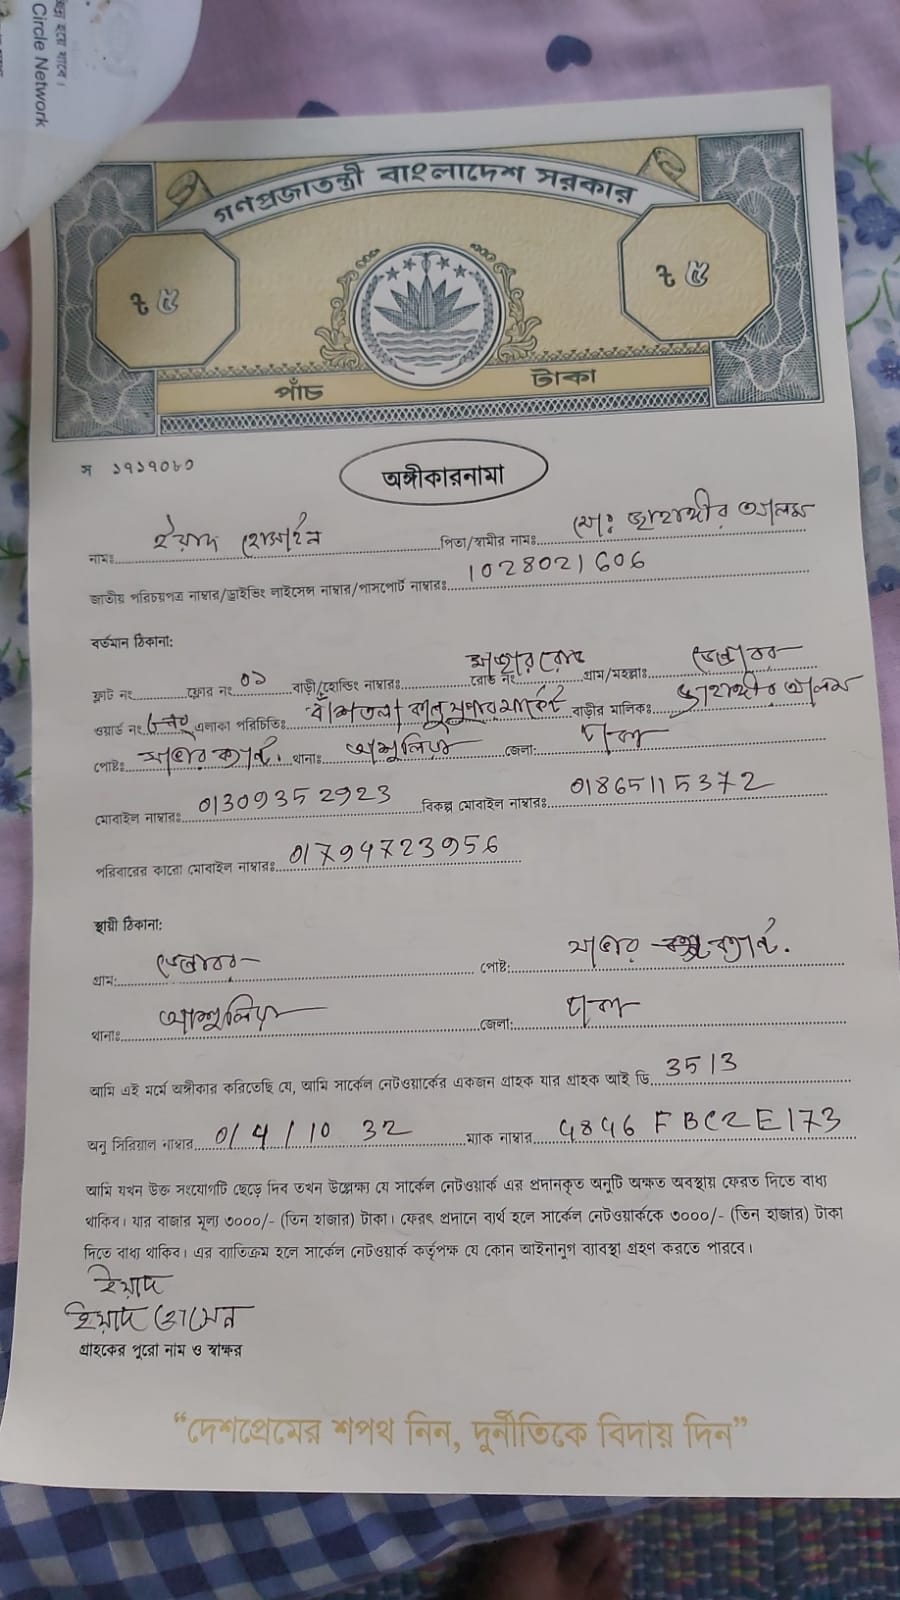 হয়ে যাবে।
Circle Network
গণপ্রজাতন্ত্রী বাংলাদেশ সরকার
৳ ৫ ৳ ৫
পাঁচ টাকা
স ১৭১৭০৮০
অঙ্গীকারনামা
নামঃ ইয়াদ হোসাইন পিতা/স্বামীর নামঃ মোঃ জাহাঙ্গীর আলম
জাতীয় পরিচয়পত্র নাম্বার/ড্রাইভিং লাইসেন্স নাম্বার/পাসপোর্ট নাম্বারঃ 1028021606
বর্তমান ঠিকানা:
ফ্লাট নং ফ্লোর নং ০১ বাড়ী/হোল্ডিং নাম্বারঃ রোড নং গ্রাম/মহল্লাঃ
ওয়ার্ড নং এলাকা পরিচিতিঃ বাঁশতলা কালু সুপার মার্কেট বাড়ীর মালিকঃ জাহাঙ্গীর আলম
পোষ্টঃ থানাঃ আশুলিয়া জেলা: ঢাকা
মোবাইল নাম্বারঃ 01309352923 বিকল্প মোবাইল নাম্বারঃ 01865115372
পরিবারের কারো মোবাইল নাম্বারঃ 01794723956
স্থায়ী ঠিকানা:
গ্রাম: পোষ্ট:
থানাঃ আশুলিয়া জেলা: ঢাকা
আমি এই মর্মে অঙ্গীকার করিতেছি যে, আমি সার্কেল নেটওয়ার্কের একজন গ্রাহক যার গ্রাহক আই ডি 3513
অনু সিরিয়াল নাম্বার 0/4/10 32 ম্যাক নাম্বার 4846 FBC2E173
আমি যখন উক্ত সংযোগটি ছেড়ে দিব তখন উল্লেক্ষ্য যে সার্কেল নেটওয়ার্ক এর প্রদানকৃত অনুটি অক্ষত অবস্থায় ফেরত দিতে বাধ্য
থাকিব। যার বাজার মূল্য ৩০০০/- (তিন হাজার) টাকা। ফেরৎ প্রদানে ব্যর্থ হলে সার্কেল নেটওয়ার্ককে ৩০০০/- (তিন হাজার) টাকা
দিতে বাধ্য থাকিব। এর ব্যতিক্রম হলে সার্কেল নেটওয়ার্ক কর্তৃপক্ষ যে কোন আইনানুগ ব্যাবস্থা গ্রহণ করতে পারবে।
ইয়াদ
ইয়াদ হোসেন
গ্রাহকের পুরো নাম ও স্বাক্ষর
“দেশপ্রেমের শপথ নিন, দুর্নীতিকে বিদায় দিন”